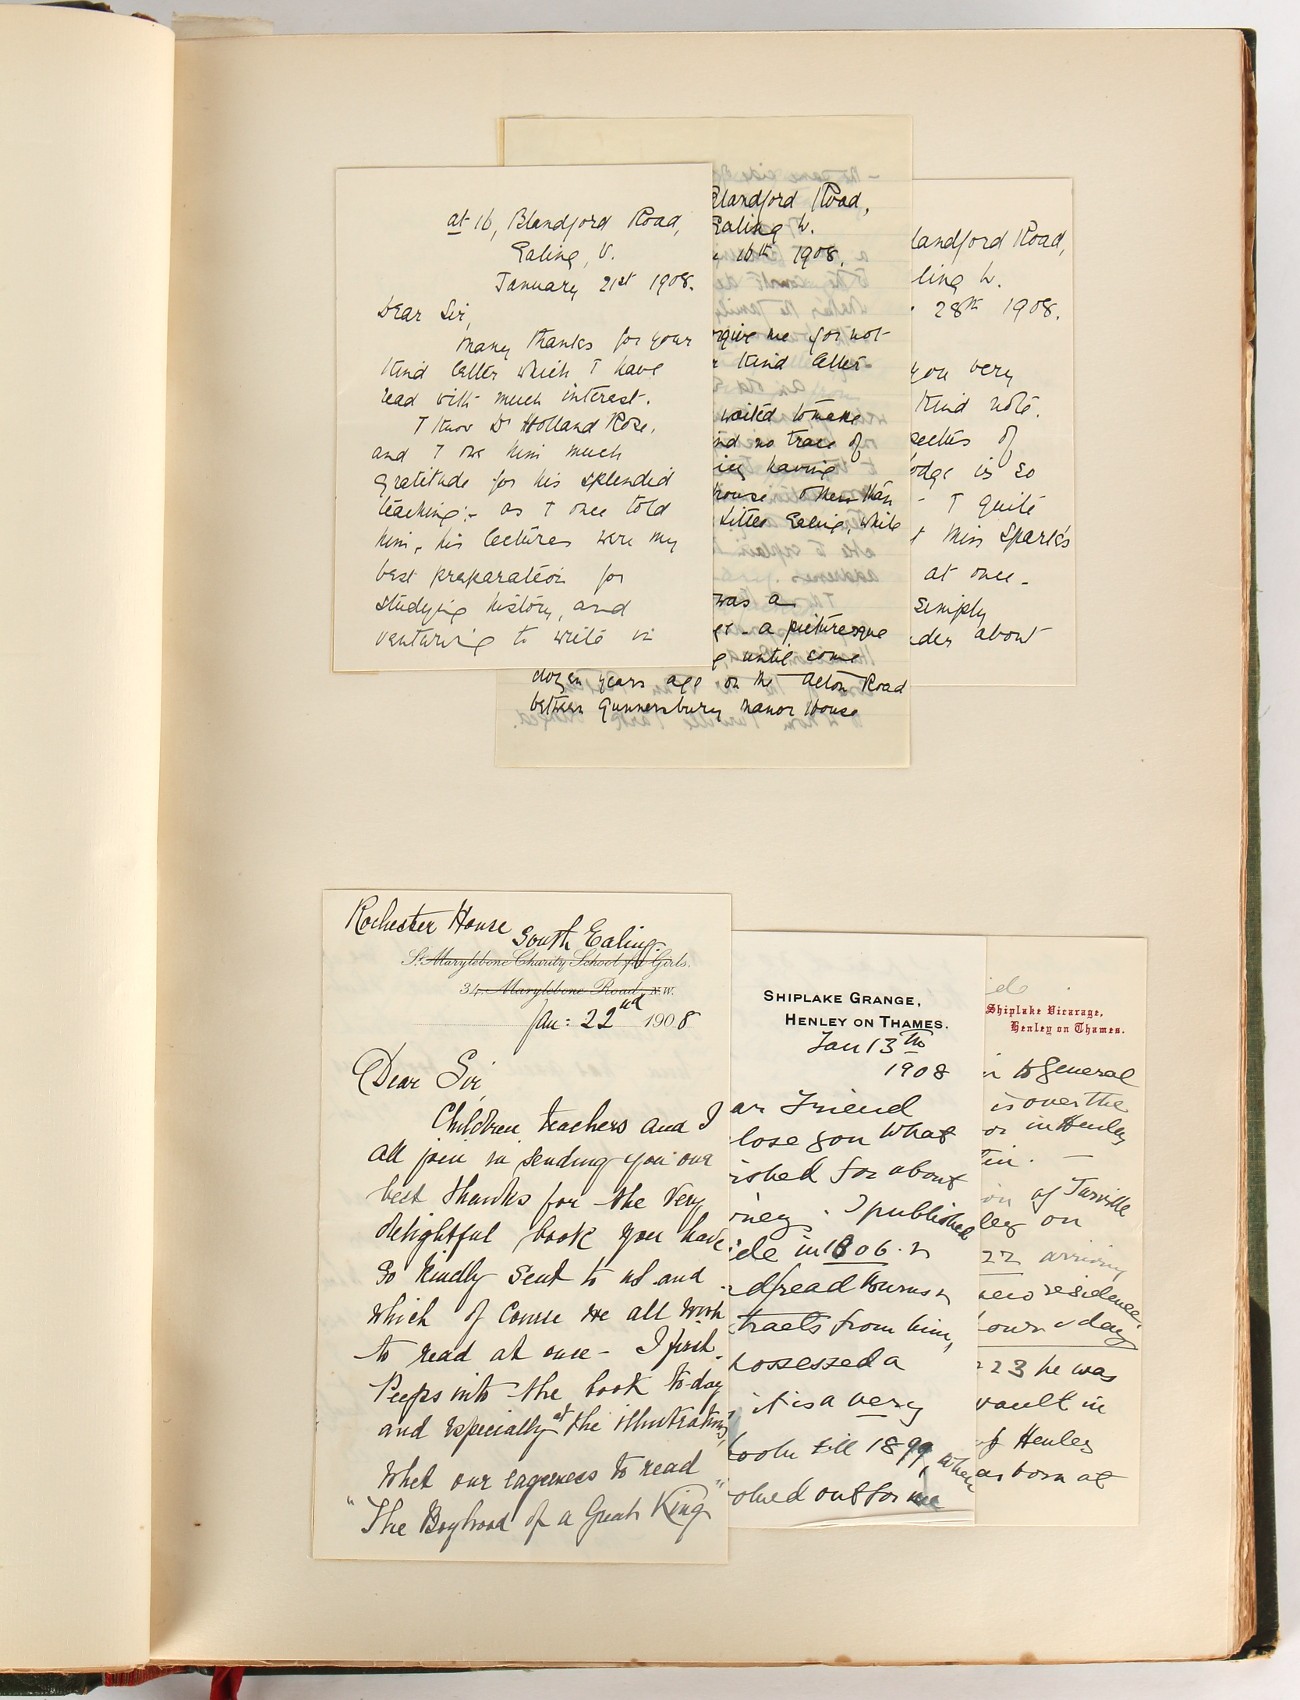 at 16, Blandford Road,
Ealing, W.
January 21st 1908.
Dear Sir,
Many thanks for your
kind letter which I have
read with much interest.
I know Dr Holland Rose,
and I owe him much
gratitude for his splendid
teaching:- as I once told
him, his lectures were my
best preparation for
studying history, and
venturing to write in
Blandford Road,
Ealing W.
16th 1908.
give me for not
kind letter
waited to make
no trace of
having
house other than
Little Ealing, while
was a
a picturesque
until some
dozen years ago on the Acton Road
between Gunnersbury Manor House
landford Road,
ling W.
28th 1908.
you very
kind note.
of
odge is so
I quite
Miss Spark's
at once
simply
about
Rochester House
South Ealing.
St. Marylebone Charity School for Girls.
34, Marylebone Road, N.W.
Jan: 22nd 1908
Dear Sir,
Children teachers and I
all join in sending you our
best thanks for the very
delightful book you have
so kindly sent to us and
which of course we all wish
to read at once - I first
Peeps into the book to-day
and especially at the illustrations,
whet our eagerness to read
"The Boyhood of a Great King"
SHIPLAKE GRANGE,
HENLEY ON THAMES.
Jan 13th
1908
ar Friend
lose you what
ished for about
I published
in 1806
tracts from him,
possessed a
it is a very
book till 1899, when
out for me
Shiplake Vicarage,
Henley on Thames.
to General
is over the
in Henley
of Turville
ley on
22 arriving
residence
own & day
23 he was
vault in
of Henley
as born at